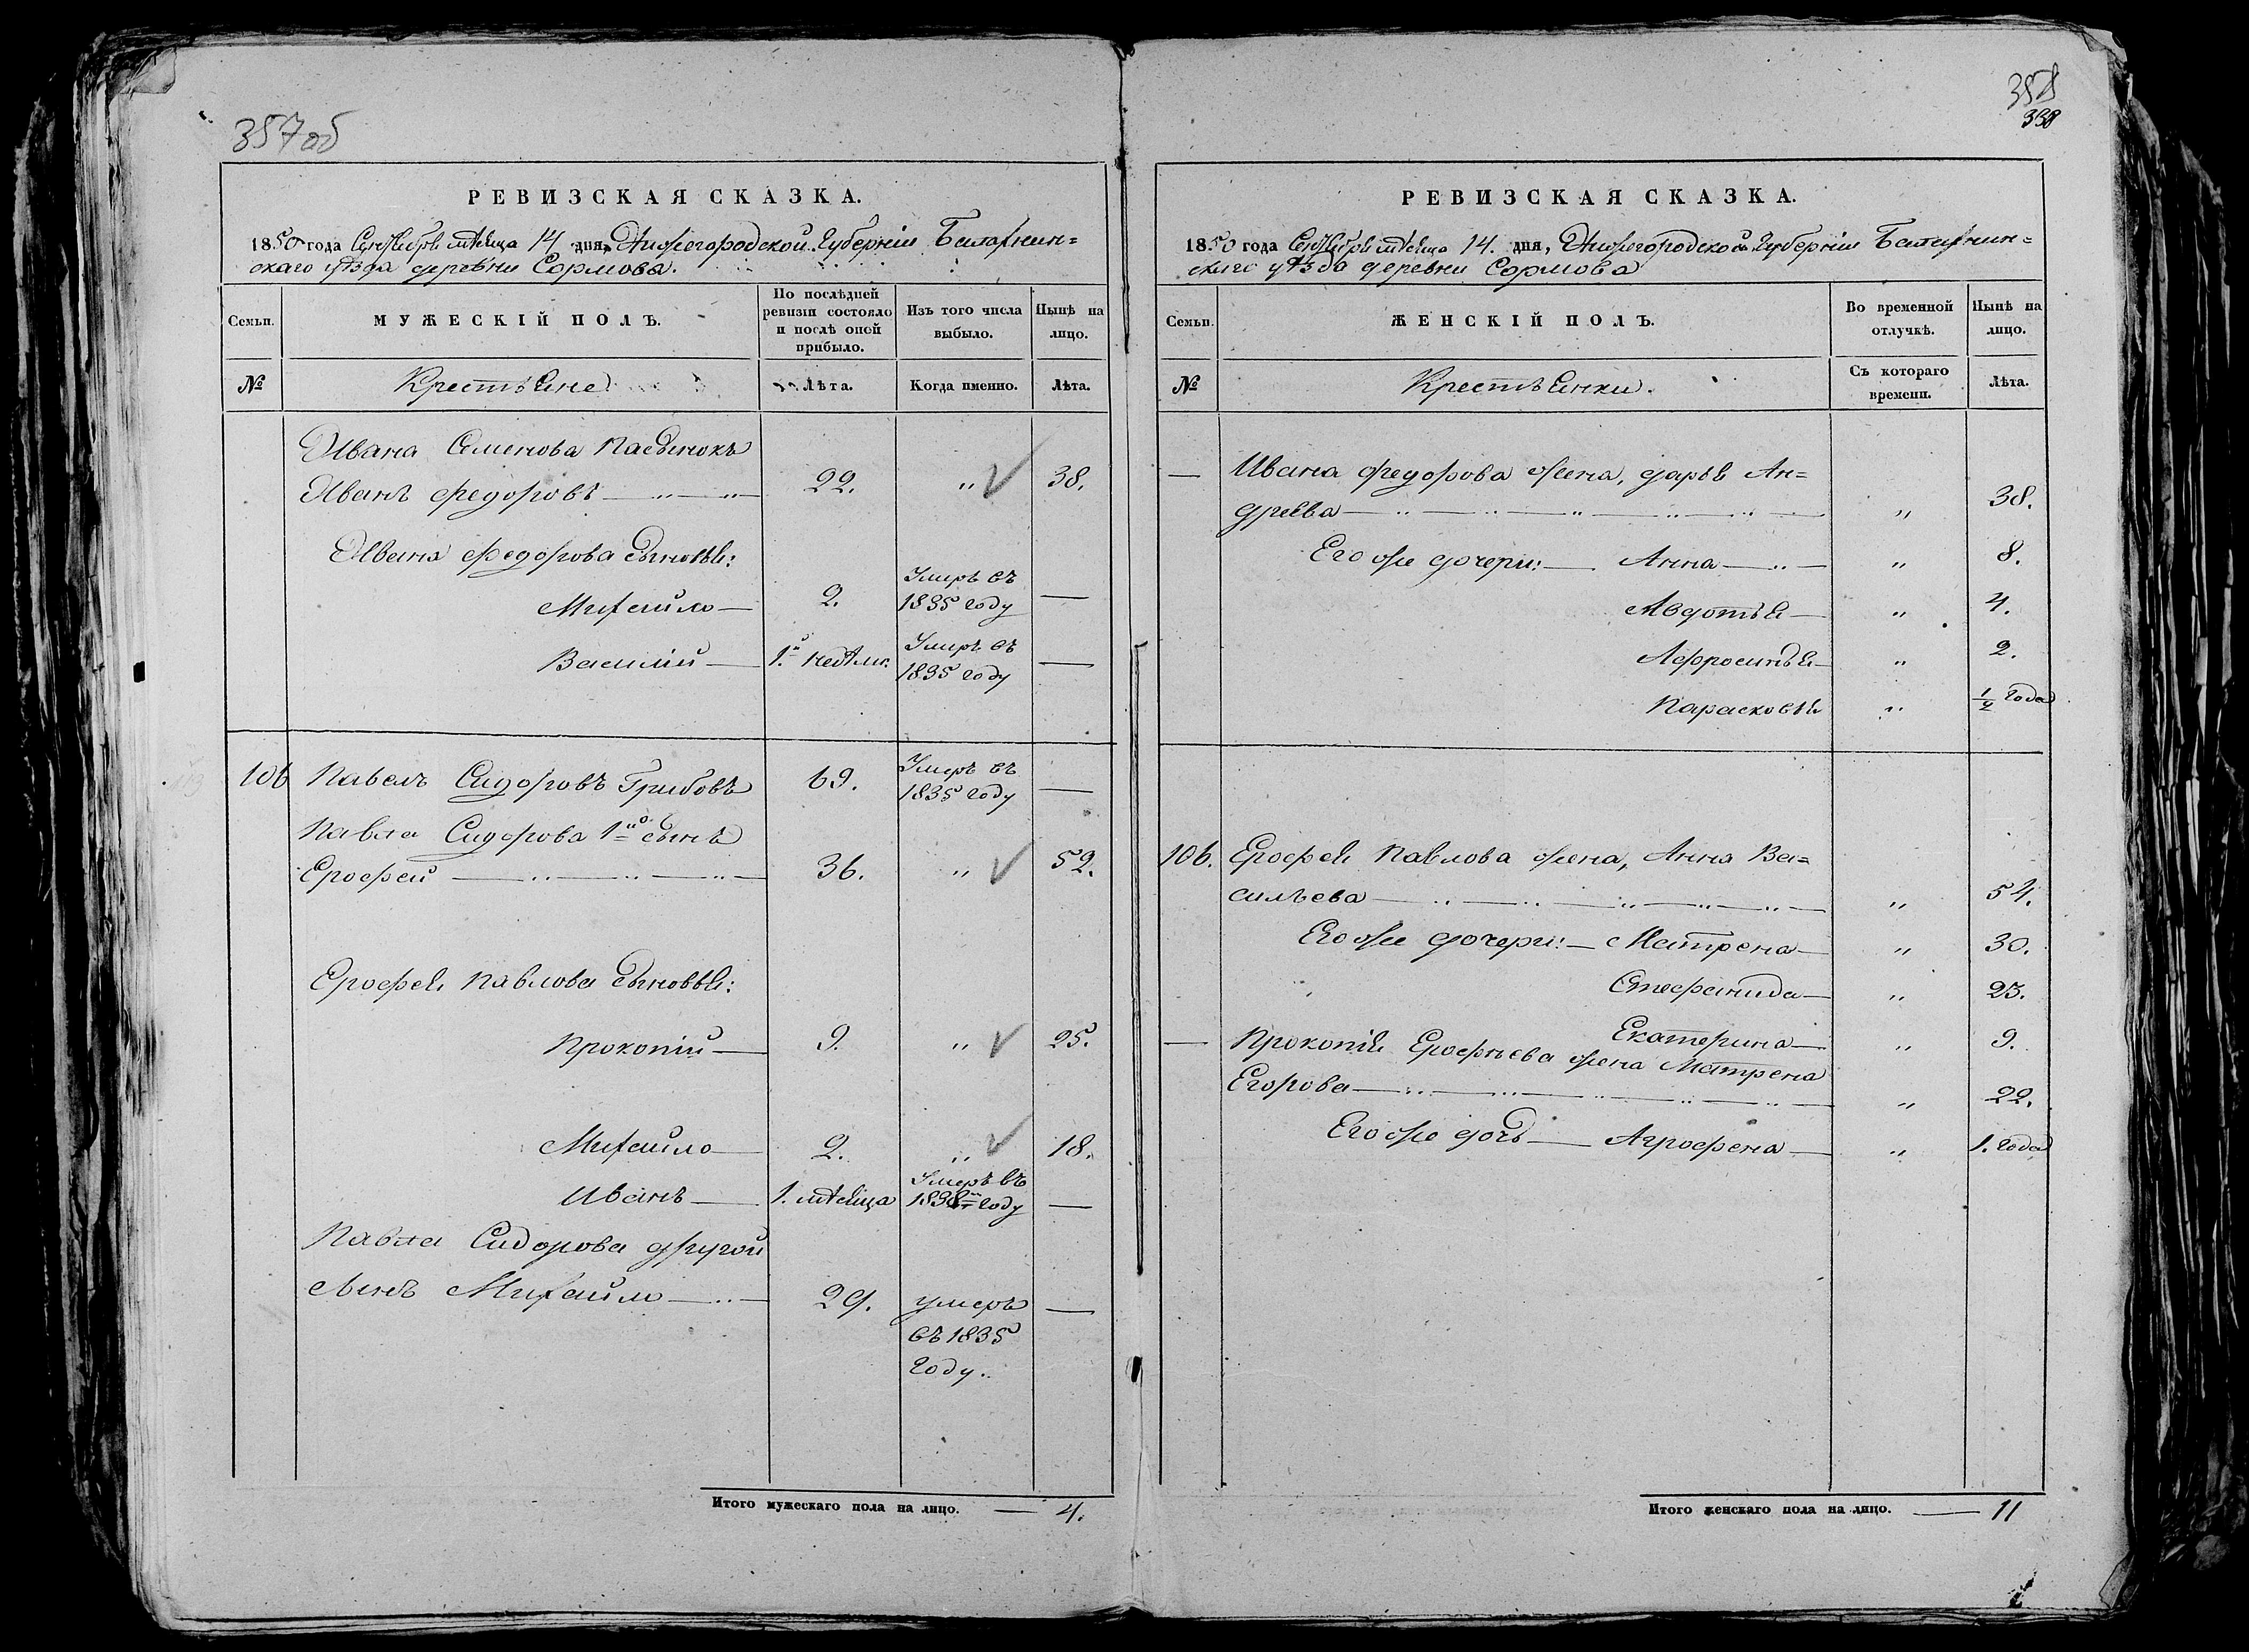 357 об
РЕВИЗСКАЯ СКАЗКА.
1850 года Сентября мѣсяца 14 дня, Нижегородской Губерніи Балахнин=
скаго уѣзда деревни Сормова.
Семьи.
МУЖЕСКІЙ ПОЛЪ.
По послѣдней
ревизіи состояло
и послѣ оной
прибыло.
Изъ того числа
выбыло.
Нынѣ на
лицо.
№
Крестьяне
Лѣта.
Когда именно.
Лѣта.
Ивана Семенова пасынокъ
Иванъ Федоровъ — „ — „ — 22. „ 38.
Ивана Федорова сыновья:
Михайло — 2. Умеръ въ
1835 году —
Василій — 1.й недѣли. Умеръ въ
1835 году —
106 Павелъ Сидоровъ Грибовъ 69. Умеръ въ
1835 году —
Павла Сидорова 1й сынъ
Ерофей — „ — „ — „ — 36. „ 52.
Ерофея Павлова сыновья:
Прокопій — 9. „ 25.
Михайло — 2. „ 18.
Иванъ — 1. мѣсяца Умеръ въ
году —
Павла Сидорова другой
сынъ Михайло — „ — 29. умеръ —
въ 1835
году.
Итого мужескаго пола на лицо. — 4.
358
358
РЕВИЗСКАЯ СКАЗКА.
1850 года Сентября мѣсяца 14. дня, Нижегородской Губерніи Балахнин=
скаго уѣзда деревни Сормова
Семьи.
ЖЕНСКІЙ ПОЛЪ.
Во временной
отлучкѣ.
Нынѣ на
лицо.
№
Крестьянки.
Съ котораго
времени.
Лѣта.
— Ивана Федорова жена, Дарья Ан=
дреева — „ — „ — „ — „ — „ — „ 38.
Его же дочери: — Анна — „ — „ 8.
Авдотья — „ 4.
Афросинья — „ 2.
Парасковья „ 1/2 года
106. Ерофея Павлова жена, Анна Ва=
сильева — „ — „ — „ — „ — „ — „ 54.
Его же дочери: — Матрена — „ 30.
Стефанида — „ 23.
Екатерина — „ 9.
— Прокопія Ерофѣева жена Матрена
Егорова — „ — „ — „ — „ — „ — „ 22.
Его же дочь — Агрофена — „ 1. года
Итого женскаго пола на лицо. — 11